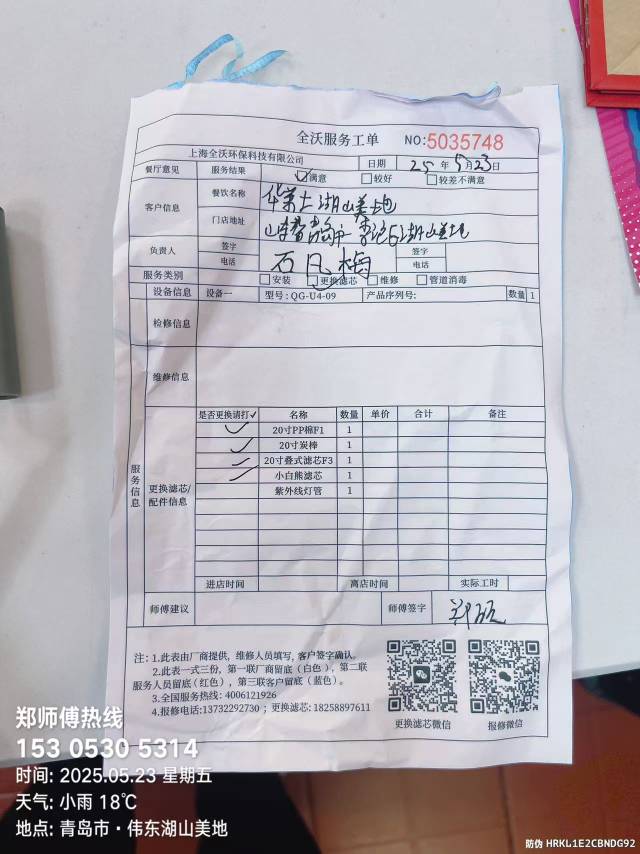 全沃服务工单 NO:5035748
上海全沃环保科技有限公司 日期 25年5月23日
餐厅意见 服务结果 ✓满意 □较好 □较差不满意
客户信息 餐饮名称 华莱士湖山美地
门店地址 湖山美地
负责人 签字 石凡梅 签字
电话 电话
服务类别 □安装 □更换滤芯 □维修 □管道消毒
设备信息 设备一 型号:QG-U4-09 产品序列号: 数量 1
检修信息
维修信息
服务信息
更换滤芯/配件信息
是否更换请打✓ 名称 数量 单价 合计 备注
✓ 20寸PP棉F1 1
✓ 20寸炭棒 1
✓ 20寸叠式滤芯F3 1
✓ 小白熊滤芯 1
紫外线灯管 1
进店时间 离店时间 实际工时
师傅建议 师傅签字
注:1.此表由厂商提供,维修人员填写,客户签字确认。
2.此表一式三份,第一联厂商留底(白色),第二联
服务人员留底(红色),第三联客户留底(蓝色)。
3.全国服务热线:4006121926
4.报修电话:13732292730;更换滤芯:18258897611
更换滤芯微信 报修微信
郑师傅热线
153 0530 5314
时间: 2025.05.23 星期五
天气: 小雨 18℃
地点: 青岛市·伟东湖山美地
防伪 HRKL1E2CBNDG92